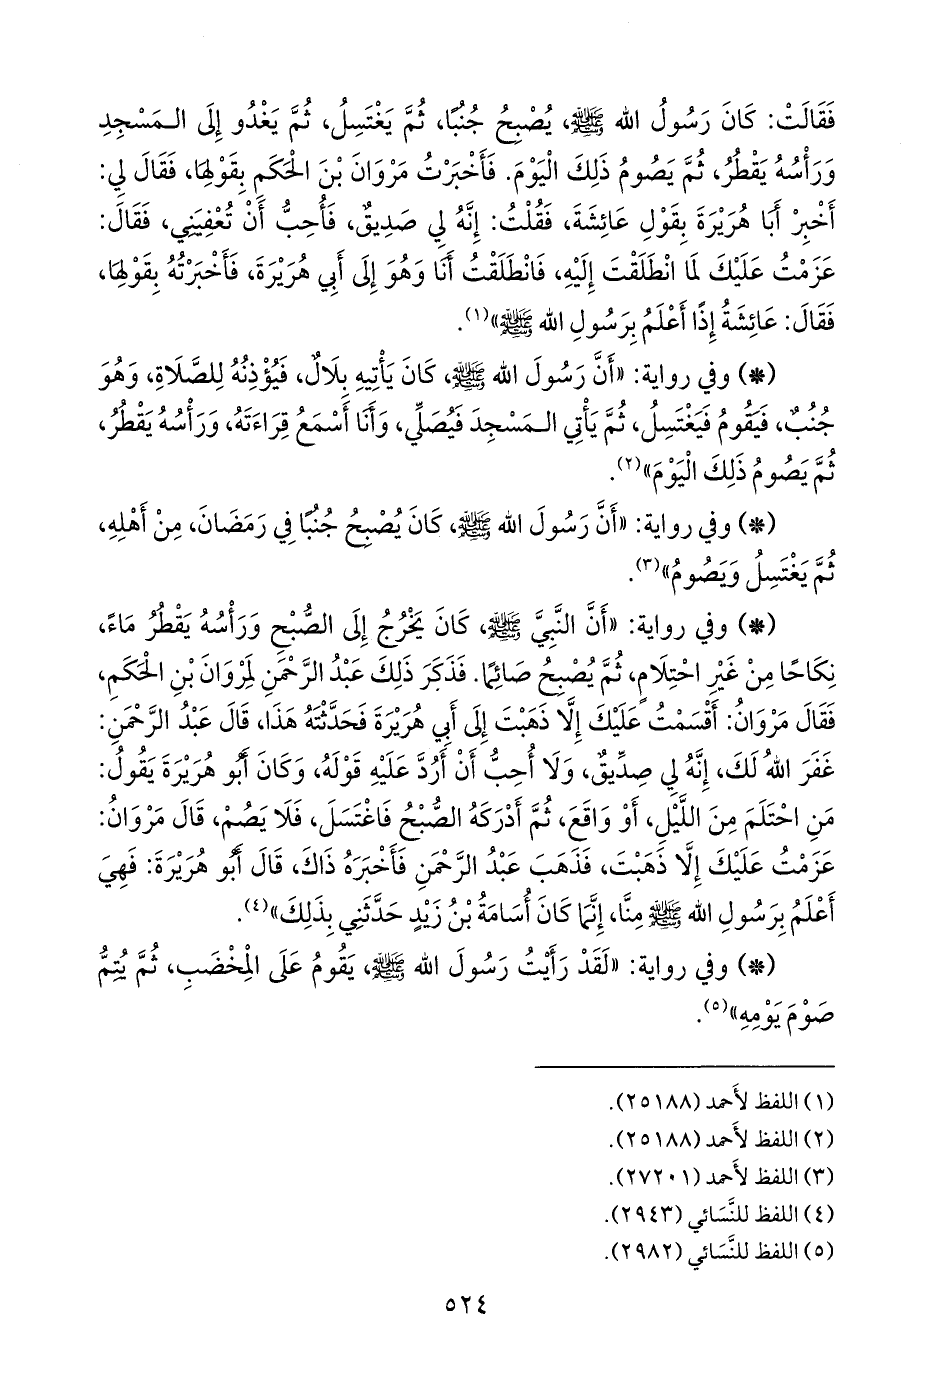 فَقَالَتْ: كَانَ رَسُولُ الله ﷺ، يُصْبِحُ جُنُبًا، ثُمَّ يَغْتَسِلُ، ثُمَّ يَغْدُو إِلَى الْمَسْجِدِ
وَرَأْسُهُ يَقْطُرُ، ثُمَّ يَصُومُ ذَلِكَ الْيَوْمَ. فَأَخْبَرْتُ مَرْوَانَ بْنَ الْحَكَمِ بِقَوْلِهَا، فَقَالَ لِي:
أَخْبِرْ أَبَا هُرَيْرَةَ بِقَوْلِ عَائِشَةَ، فَقُلْتُ: إِنَّهُ لِي صَدِيقٌ، فَأُحِبُّ أَنْ تُعْفِيَنِي، فَقَالَ:
عَزَمْتُ عَلَيْكَ لَمَا انْطَلَقْتَ إِلَيْهِ، فَانْطَلَقْتُ أَنَا وَهُوَ إِلَى أَبِي هُرَيْرَةَ، فَأَخْبَرْتُهُ بِقَوْلِهَا،
فَقَالَ: عَائِشَةُ إِذًا أَعْلَمُ بِرَسُولِ الله ﷺ»(١).
(*) وفي رواية: «أَنَّ رَسُولَ الله ﷺ، كَانَ يَأْتِيهِ بِلَالٌ، فَيُؤْذِنُهُ لِلصَّلَاةِ، وَهُوَ
جُنُبٌ، فَيَقُومُ فَيَغْتَسِلُ، ثُمَّ يَأْتِي الْمَسْجِدَ فَيُصَلِّي، وَأَنَا أَسْمَعُ قِرَاءَتَهُ، وَرَأْسُهُ يَقْطُرُ،
ثُمَّ يَصُومُ ذَلِكَ الْيَوْمَ»(٢).
(*) وفي رواية: «أَنَّ رَسُولَ الله ﷺ، كَانَ يُصْبِحُ جُنُبًا فِي رَمَضَانَ، مِنْ أَهْلِهِ،
ثُمَّ يَغْتَسِلُ وَيَصُومُ»(٣).
(*) وفي رواية: «أَنَّ النَّبِيَّ ﷺ، كَانَ يَخْرُجُ إِلَى الصُّبْحِ وَرَأْسُهُ يَقْطُرُ مَاءً،
نِكَاحًا مِنْ غَيْرِ احْتِلَامٍ، ثُمَّ يُصْبِحُ صَائِمًا. فَذَكَرَ ذَلِكَ عَبْدُ الرَّحْمَنِ لِمَرْوَانَ بْنِ الْحَكَمِ،
فَقَالَ مَرْوَانُ: أَقْسَمْتُ عَلَيْكَ إِلَّا ذَهَبْتَ إِلَى أَبِي هُرَيْرَةَ فَحَدَّثْتَهُ هَذَا، قَالَ عَبْدُ الرَّحْمَنِ:
غَفَرَ اللهُ لَكَ، إِنَّهُ لِي صِدِّيقٌ، وَلَا أُحِبُّ أَنْ أَرُدَّ عَلَيْهِ قَوْلَهُ، وَكَانَ أَبُو هُرَيْرَةَ يَقُولُ:
مَنِ احْتَلَمَ مِنَ اللَّيْلِ، أَوْ وَاقَعَ، ثُمَّ أَدْرَكَهُ الصُّبْحُ فَاغْتَسَلَ، فَلَا يَصُمْ، قَالَ مَرْوَانُ:
عَزَمْتُ عَلَيْكَ إِلَّا ذَهَبْتَ، فَذَهَبَ عَبْدُ الرَّحْمَنِ فَأَخْبَرَهُ ذَاكَ، قَالَ أَبُو هُرَيْرَةَ: فَهِيَ
أَعْلَمُ بِرَسُولِ الله ﷺ مِنَّا، إِنَّمَا كَانَ أُسَامَةُ بْنُ زَيْدٍ حَدَّثَنِي بِذَلِكَ»(٤).
(*) وفي رواية: «لَقَدْ رَأَيْتُ رَسُولَ الله ﷺ، يَقُومُ عَلَى الْمِخْضَبِ، ثُمَّ يُتِمُّ
صَوْمَ يَوْمِهِ»(٥).
(١) اللفظ لأَحمد (٢٥١٨٨).
(٢) اللفظ لأَحمد (٢٥١٨٨).
(٣) اللفظ لأَحمد (٢٧٢٠١).
(٤) اللفظ للنَّسَائي (٢٩٤٣).
(٥) اللفظ للنَّسَائي (٢٩٨٢).
٥٢٤